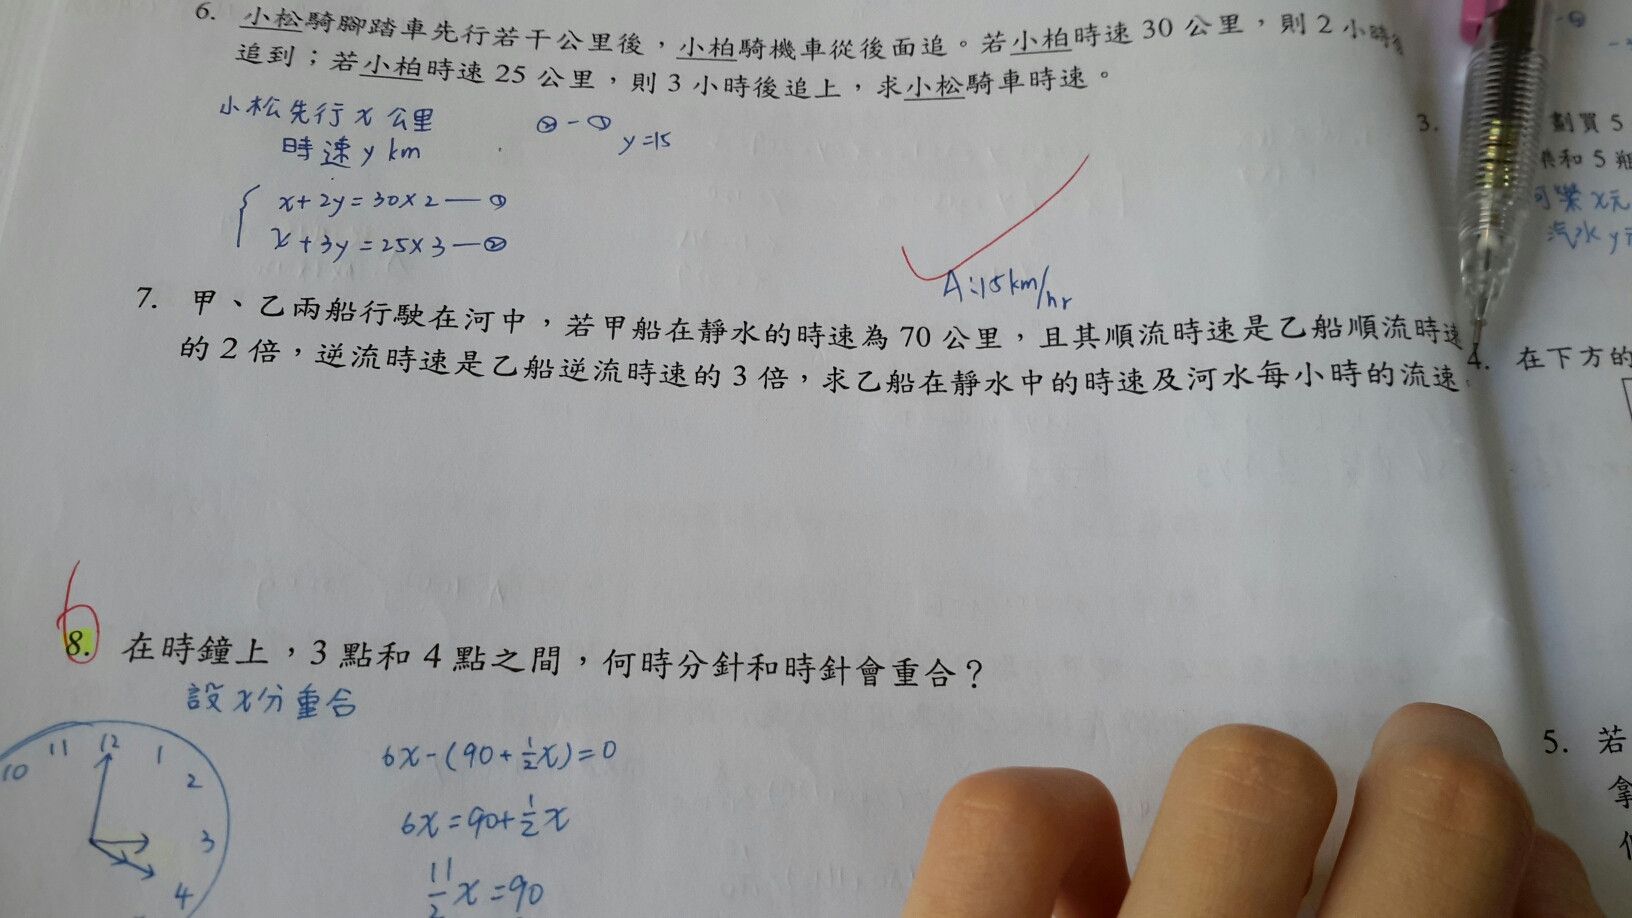 6. 小松騎腳踏車先行若干公里後，小柏騎機車從後面追。若小柏時速 30 公里，則 2 小時後
追到；若小柏時速 25 公里，則 3 小時後追上，求小松騎車時速。
小松先行 x 公里
時速 y km
② - ①
y = 15
x + 2y = 30 × 2 — ①
x + 3y = 25 × 3 — ②
A: 15 km/hr
7. 甲、乙兩船行駛在河中，若甲船在靜水的時速為 70 公里，且其順流時速是乙船順流時速
的 2 倍，逆流時速是乙船逆流時速的 3 倍，求乙船在靜水中的時速及河水每小時的流速
6
8. 在時鐘上，3 點和 4 點之間，何時分針和時針會重合？
設 x 分重合
10 11 12 1 2 3 4
6x - (90 + 1/2 x) = 0
6x = 90 + 1/2 x
11/2 x = 90
3. 劃買 5
和 5 瓶
可樂 x元
汽水 y元
4. 在下方的
5. 若
拿